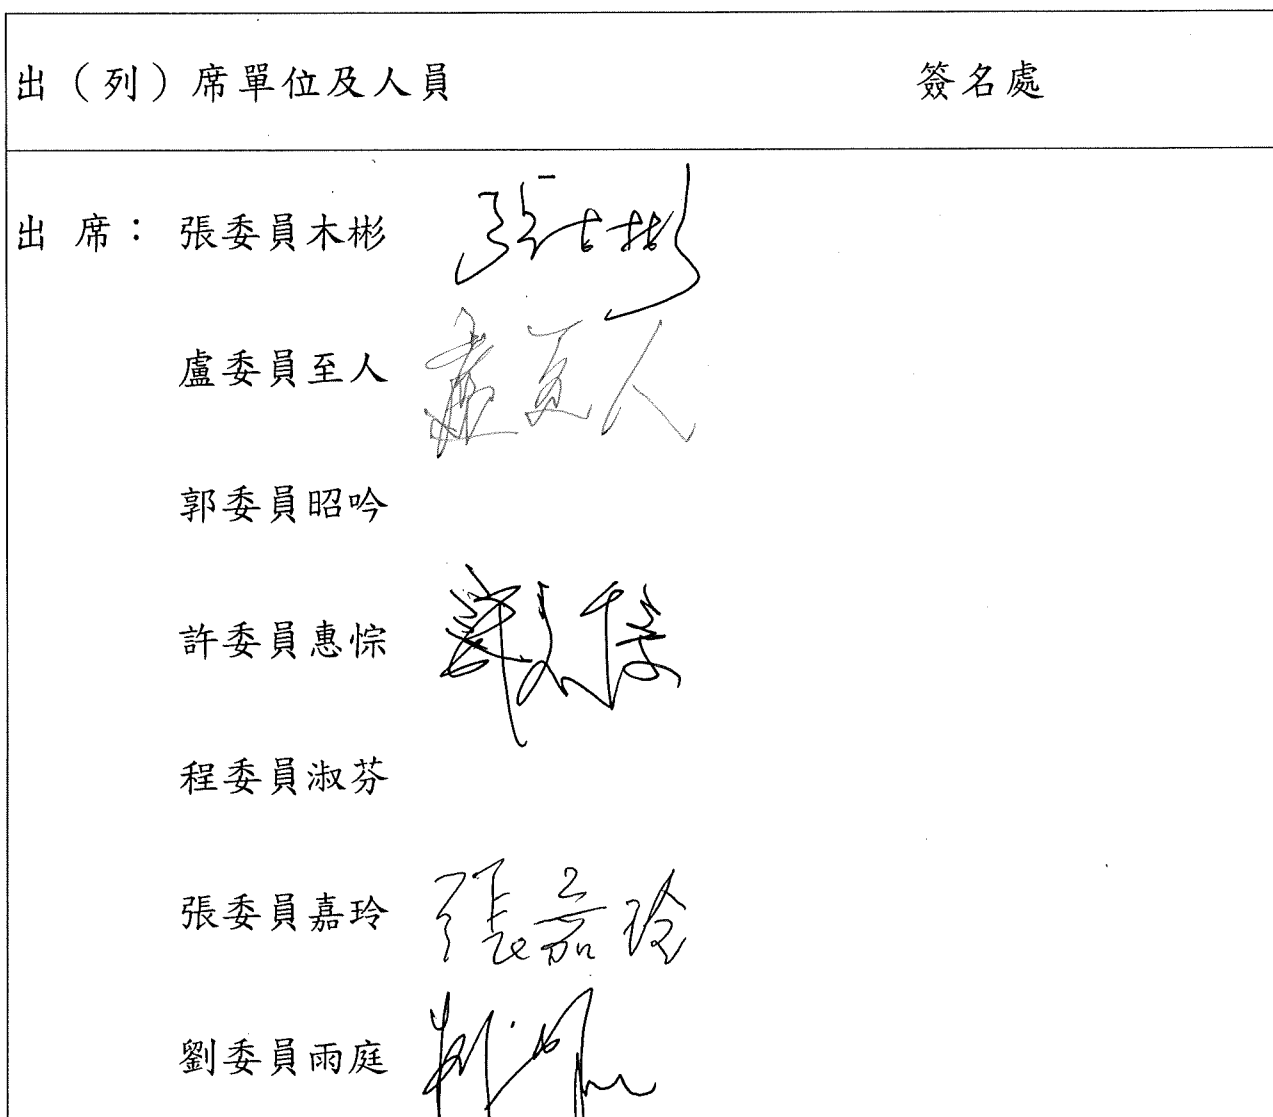 出（列）席單位及人員 簽名處
出 席： 張委員木彬 張木彬
盧委員至人 盧至人
郭委員昭吟
許委員惠悰
程委員淑芬
張委員嘉玲 張嘉玲
劉委員雨庭